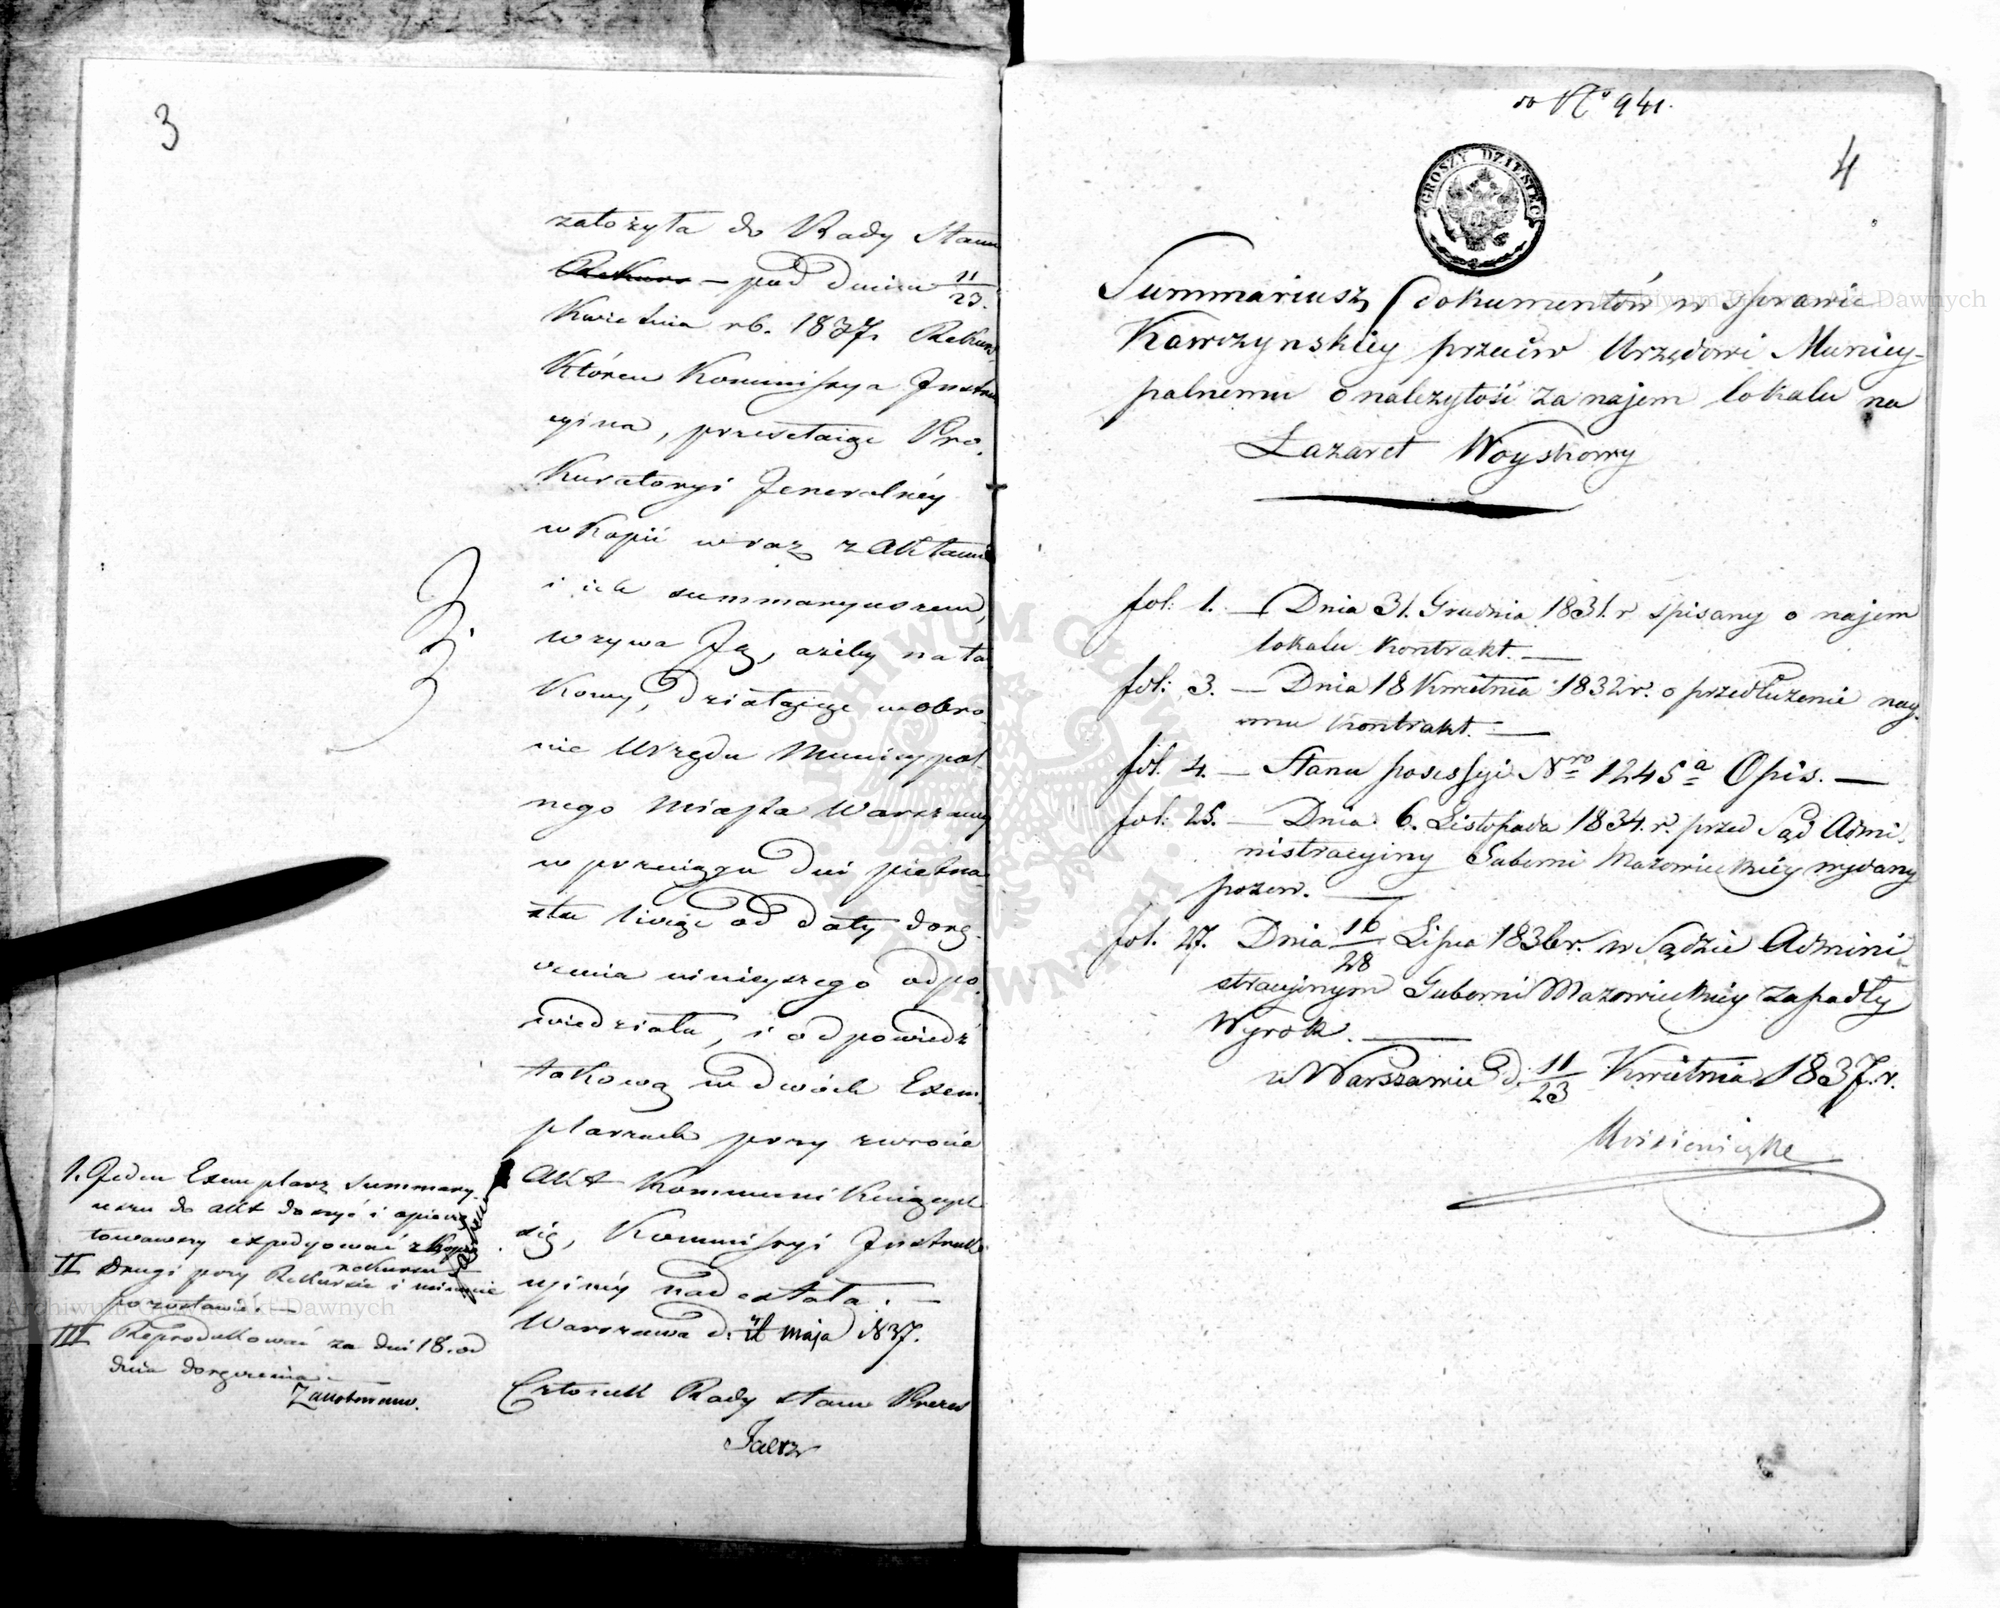 3
założyła do Rady Stanu
Rekurs — pod dniem 11/23.
Kwietnia rb. 1837. Rekurs
Któren Kommissya Instruk
cyina, przesełaiąc Pro.
Kuratoryi Jeneralnéy
w Kopii wraz z Aktami
i ich summaryuszem,
wzywa Ją, ażeby na ta
Kowy, działaiąc w obro
nie Urzędu Municypal-
nego Miasta Warszawy
w przeciągu dni piętna
stu licząc od daty dorę-
czenia ninieyszego odpo.
wiedziała, i odpowiedź
takową w dwóch Exem
plarzach przy zwrocie
Akt Kommunikuiących
się, Kommissyi Instruk
cyinéy nadesłała. —
Warszawa d. maja 1837.
Członek Rady Stanu Prezes
1. Jeden Exemplarz summary
uszu do akt doszyć i opieczę
towawszy expedyować z kopią
rekursu
II Drugi przy Rekursie i
pozostawić. —
III Reprodukować za dni 18. od
dnia doręczenia.
do No 941.
4
GROSZY DZIESIĘĆ
Summariusz dokumentów w sprawie
Kawczynskiey przeciw Urzędowi Municy-
palnemu o należytość za najem lokalu na
Lazaret Woyskowy
fol: 1. — Dnia 31. Grudnia 1831. r spisany o najem
lokalu Kontrakt. —
fol: 3. — Dnia 18 Kwietnia 1832 r. o przedłużenie nay-
mu Kontrakt. —
fol. 4. — Stanu possessyi Nro 1245 a Opis. —
fol: 25. — Dnia 6. Listopada 1834. r. przed Sąd Admi-
nistracyiny Guberni Mazowieckiéy wydany
pozew. —
fol. 27. Dnia 16/28 Lipca 1836 r. w Sądzie Admini
stracyjnym Guberni Mazowieckiéy zapadły
Wyrok. —
w Warszawie d. 11/23 Kwietnia 1837. r.
Archiwum Główne Akt Dawnych
Archiwum Główne Akt Dawnych
ARCHIWUM GŁÓWNE AKT DAWNYCH